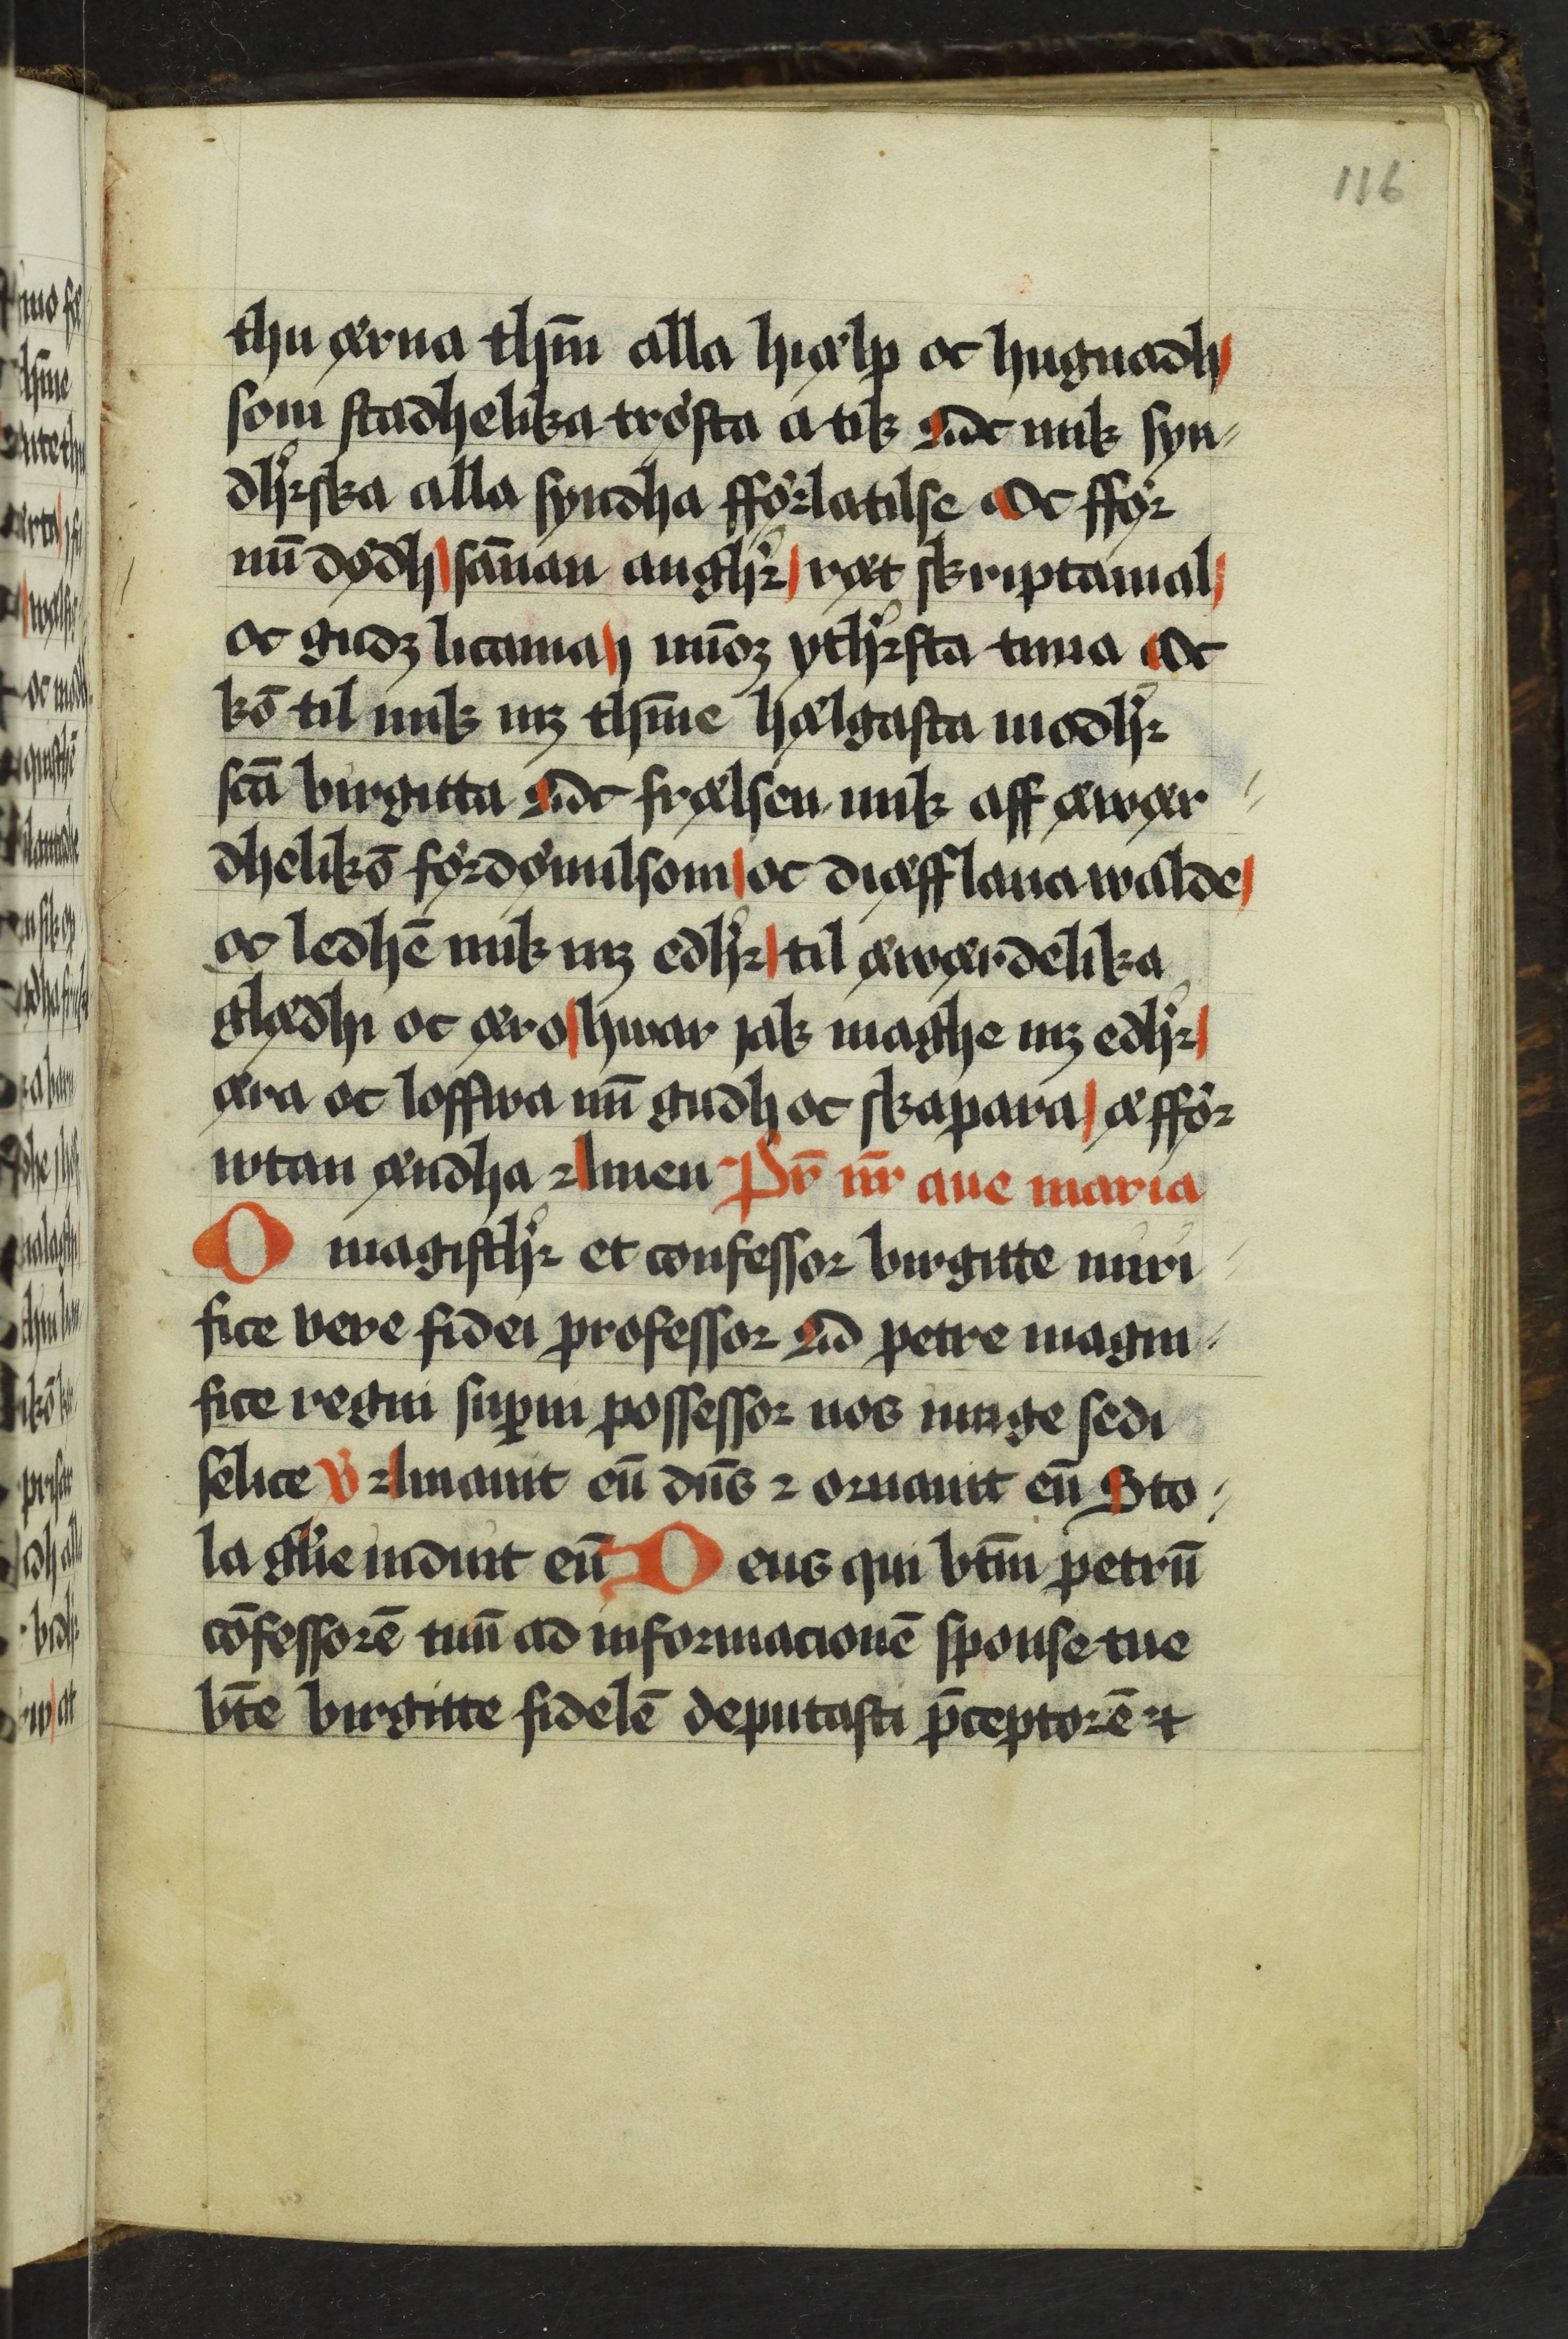 116
thu ærna thm̄ alla hiælp oc hugnadh
som stadhelika trø̇sta a tik Bidh mik syn⸗
dhꝛ̉ska alla syndha fføꝛlatilse Oc fføꝛ
mī dødh sān̄an anghꝛ̉ ræt skriptamal
oc gudz licama ij minoz ythꝛ̉sta tima Oc
kō til mik mz thīne hælgasta modhꝛ̉
sc̄a birgitta Oc frælsen mik aff æwær⸗
dhelikō føꝛdømilsom oc diæfflana walde
oc ledhē mik mz edhꝛ̉ til æwærdelika
glædhi oc æro hwar jak maghe mz edhꝛ̉
æra oc loffwa mī gudh oc skapara æ fføꝛ
wtan ændha Amen Pr̄ nr̄ aue maria
O magisthꝛ̉ et confessoꝛ birgitte miri⸗
fice vere fidei professoꝛ O petre magni⸗
fice regni suꝑni possessoꝛ nos iunge sedi
felice v̄ Amauit eū dn̄s ⁊ oꝛnauit eū Sto⸗
la glīe induit eū Deus qui bt̄m petrū
cōfessoꝛē tuū ad infoꝛmacionē sponse tue
bt̄e birgitte fidelē deputasti p̄ceptoꝛē ⁊